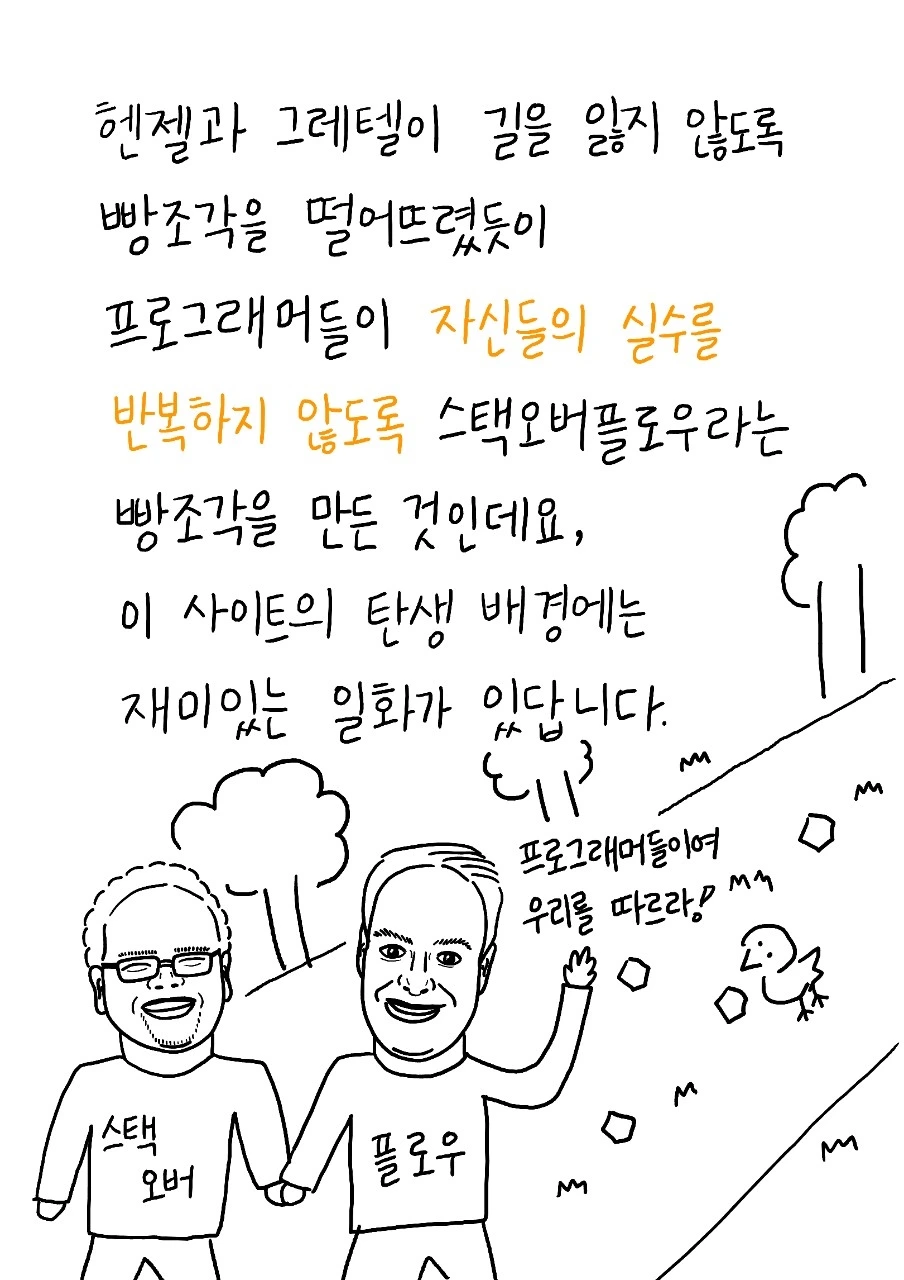 헨젤과 그레텔이 길을 잃지 않도록
빵조각을 떨어뜨렸듯이
프로그래머들이 자신들의 실수를
반복하지 않도록 스택오버플로우라는
빵조각을 만든 것인데요,
이 사이트의 탄생 배경에는
재미있는 일화가 있답니다.
프로그래머들이여
우리를 따르라!
스택
오버
플로우